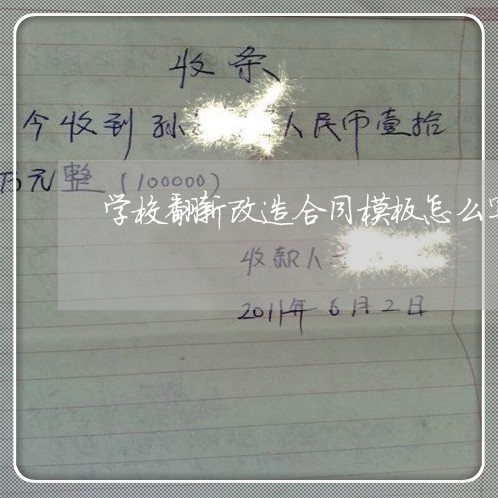 收条
今收到孙 人民币壹拾
万元整（100000）
学校翻新改造合同模板怎么写
收款人
2011年6月2日